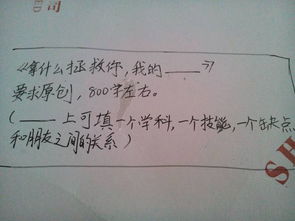 司
《拿什么拯救你,我的____》
要求原创,800字左右。
(____上可填一个学科,一个技能,一个缺点
和朋友之间的关系)
SH